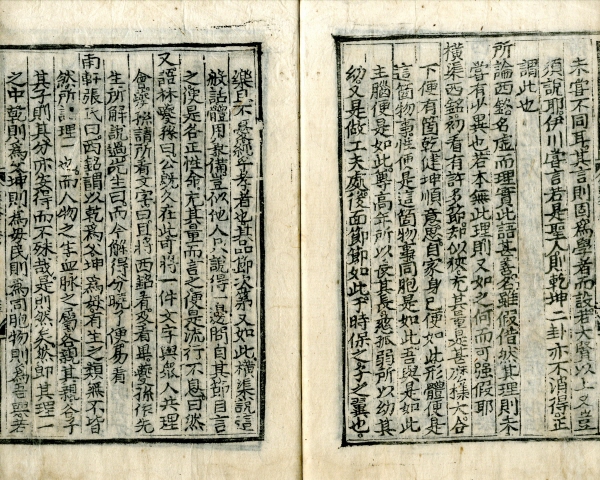 未嘗不同耳其言則固爲學者而設若大賢以上又豈
須說耶伊川嘗言若是聖人則乾坤二卦亦不消得正
謂此也
所論西銘名虛而理實此語甚善名雖假借然其理則未
嘗有少異也若本無此理則又如之何而可强假耶
橫渠西銘初看有許多節却似狹充其量是甚麽樣大合
下便有箇乾健坤順意思自家身已便如此形體便是
這箇物事性便是這箇物事同胞是如此吾與是如此
主腦便是如此尊高年所以長其長慈孤弱所以幼其
幼又是做工夫處後面節節如此于時保之子之翼也
樂且不憂純乎孝者也其品節次第又如此橫渠說這
般話體用兼備豈似他人只說得一邊問自其節目言
之便是各正性命充其量而言之便是流行不息曰然
又語林夔孫曰公旣久在此可將一件文字與衆人共理
會夔孫請所看文字曰且將西銘看及看畢夔孫依先
生所解說過先生曰而今解得分曉了便易看
南軒張氏曰西銘謂以乾爲父坤爲母有生之類無不皆
然所謂理一也而人物之生血脉之屬各親其親各子
其子則其分亦安得而不殊哉是則然矣然卽其理一
之中乾則爲父坤則爲母民則爲同胞物則爲吾與若